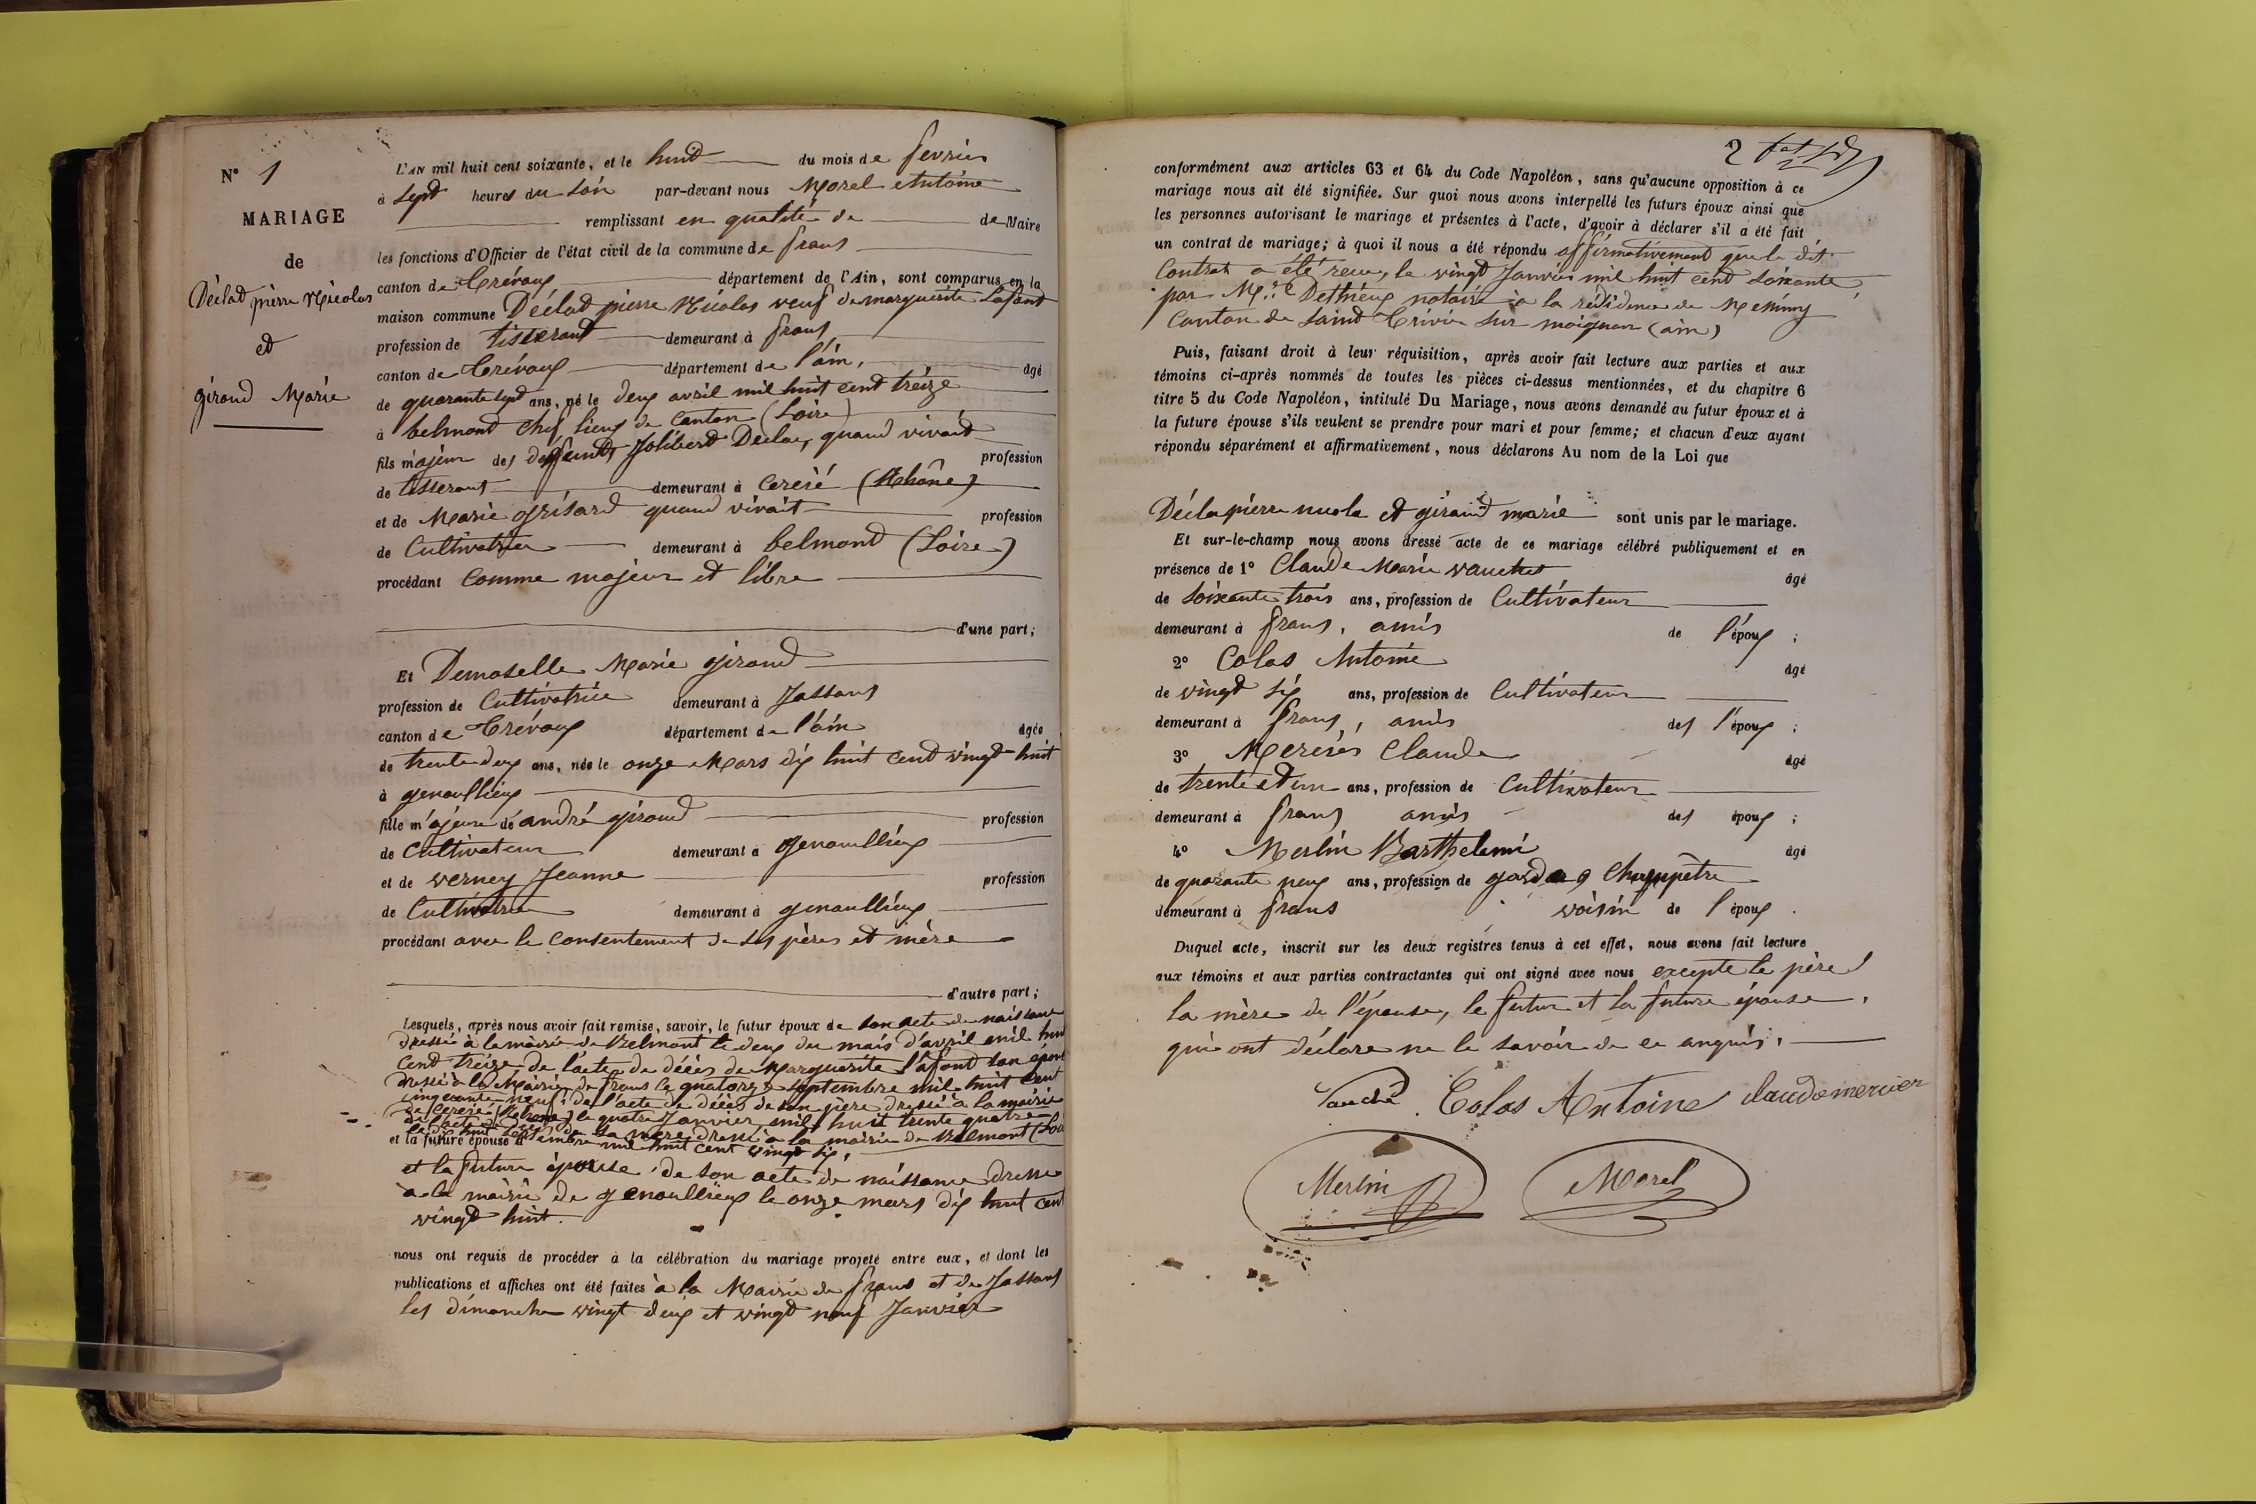 N° 1
MARIAGE
de
Déclat pierre Nicolas
et
girand Marie
L'AN mil huit cent soixante, et le huit du mois de fevrier
à sept heures du soir par-devant nous Morel Antoine
remplissant en qualité de de Maire
les fonctions d'Officier de l'état civil de la commune de frans
canton de Trévoux département de l'Ain, sont comparus en la
maison commune Déclat pierre Nicolas veuf de marguerite Lafond
profession de tisserant demeurant à frans
canton de Trévoux département de l'ain, âgé
de quarante sept ans, né le deux avril mil huit cent treize
à belmond chef lieux de Canton (Loire)
fils majeur des deffunts Jolibert Declas, quand vivait profession
de tisserant demeurant à cercié (Rhône)
et de Marie grisard quand vivait profession
de Cultivatrice demeurant à belmond (Loire)
procédant Comme majeur et libre
d'une part;
Et Demoselle Marie girand
profession de Cultivatrice demeurant à Jassans
canton de Trévoux département de l'ain âgée
de trente deux ans, née le onze Mars dix huit cent vingt huit
à genoullieux
fille majeure de andré girand profession
de Cultivateur demeurant à genoullieux
et de verney Jeanne profession
de Cultivatrice demeurant à genoullieux
procédant avec le consentement de ses pères et mère
d'autre part;
Lesquels, après nous avoir fait remise, savoir, le futur époux de son acte de naissance
dressé à la mairie de Belmont le deux du mois d'avril mil huit
cent treize de l'acte de décès de Marguerite lafond son épouse
dressé à la Mairie de frans le quatorze septembre mil huit cent
cinquante neuf; de l'acte de décès de son père dressé à la mairie
de Cercié (Rhone) le quatre Janvier mil huit trente quatre
de l'acte de décès de sa mere dressé à la mairie de Belmont (Loire
le dix huit septembre mil huit cent vingt six.
et la future épouse d
et la future épouse, de son acte de naissance dressé
à la mairie de genoullieux le onze mars dix huit cent
vingt huit.
nous ont requis de procéder à la célébration du mariage projeté entre eux, et dont les
publications et affiches ont été faites à la Mairie de frans et de Jassans
les dimanche vingt deux et vingt neuf Janvier
2
conformément aux articles 63 et 64 du Code Napoléon, sans qu'aucune opposition à ce
mariage nous ait été signifiée. Sur quoi nous avons interpellé les futurs époux ainsi que
les personnes autorisant le mariage et présentes à l'acte, d'avoir à déclarer s'il a été fait
un contrat de mariage; à quoi il nous a été répondu affirmativement que le dit
Contrat a été reçu, le vingt Janvier mil huit cent soixante,
par M.re Dethieux notaire à la résidence de
Canton de Saint Trivier sur moignan (ain)
Puis, faisant droit à leur réquisition, après avoir fait lecture aux parties et aux
témoins ci-après nommés de toutes les pièces ci-dessus mentionnées, et du chapitre 6
titre 5 du Code Napoléon, intitulé Du Mariage, nous avons demandé au futur époux et à
la future épouse s'ils veulent se prendre pour mari et pour femme; et chacun d'eux ayant
répondu séparément et affirmativement, nous déclarons Au nom de la Loi que
Décla pierre nuola et giraud marie sont unis par le mariage.
Et sur-le-champ nous avons dressé acte de ce mariage célébré publiquement et en
présence de 1° Claude Marie vauchet âgé
de soixante trois ans, profession de Cultivateur
demeurant à frans, amis de l'époux;
2° Colas Antoine âgé
de vingt six ans, profession de Cultivateur
demeurant à frans, amis des l'époux;
3° Merciés Claude âgé
de trente et un ans, profession de Cultivateur
demeurant à frans amis des époux;
4° Merlin Barthelemi âgé
de quarante neuf ans, profession de garde Champêtre
demeurant à frans voisin de l'époux.
Duquel acte, inscrit sur les deux registres tenus à cet effet, nous avons fait lecture
aux témoins et aux parties contractantes qui ont signé avec nous excepté le père
la mère de l'épouse, le futur et la future épouse,
qui ont déclare ne le savoir de ce anquis.
Vauché Colas Antoine claude mercier
Merlin Morel